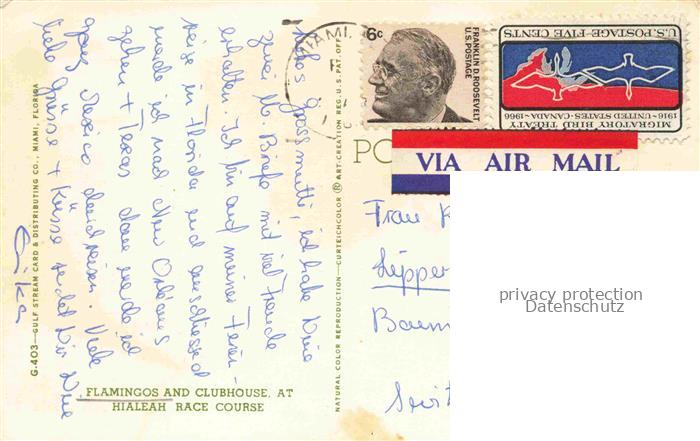 Liebes Grossmutti, ich habe Deine
zwei lb. Briefe mit viel Freude
erhalten. Ich bin auf meiner Ferien-
reise in Florida und anschliessend
werde ich nach New Orleans
gehen + Texas dann werde ich
ganz Mexico durchreisen. Viele
liebe Grüsse + Küsse sendet Dir Deine
Erika
G-403—GULF STREAM CARD & DISTRIBUTING CO., MIAMI, FLORIDA
FLAMINGOS AND CLUBHOUSE, AT
HIALEAH RACE COURSE
NATURAL COLOR REPRODUCTION—CURTEICHCOLOR ® ART-CREATION REG. U.S. PAT. OFF.
MIAMI,
6c
FRANKLIN D. ROOSEVELT
U.S. POSTAGE
U.S. POSTAGE—FIVE CENTS
MIGRATORY BIRD TREATY
1916—UNITED STATES—CANADA—1966
PO
VIA AIR MAIL
Frau K
Lipper
Baum
privacy protection
Datenschutz